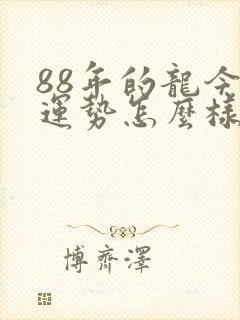 88年的龍今
運勢怎麼樣
博齊澤